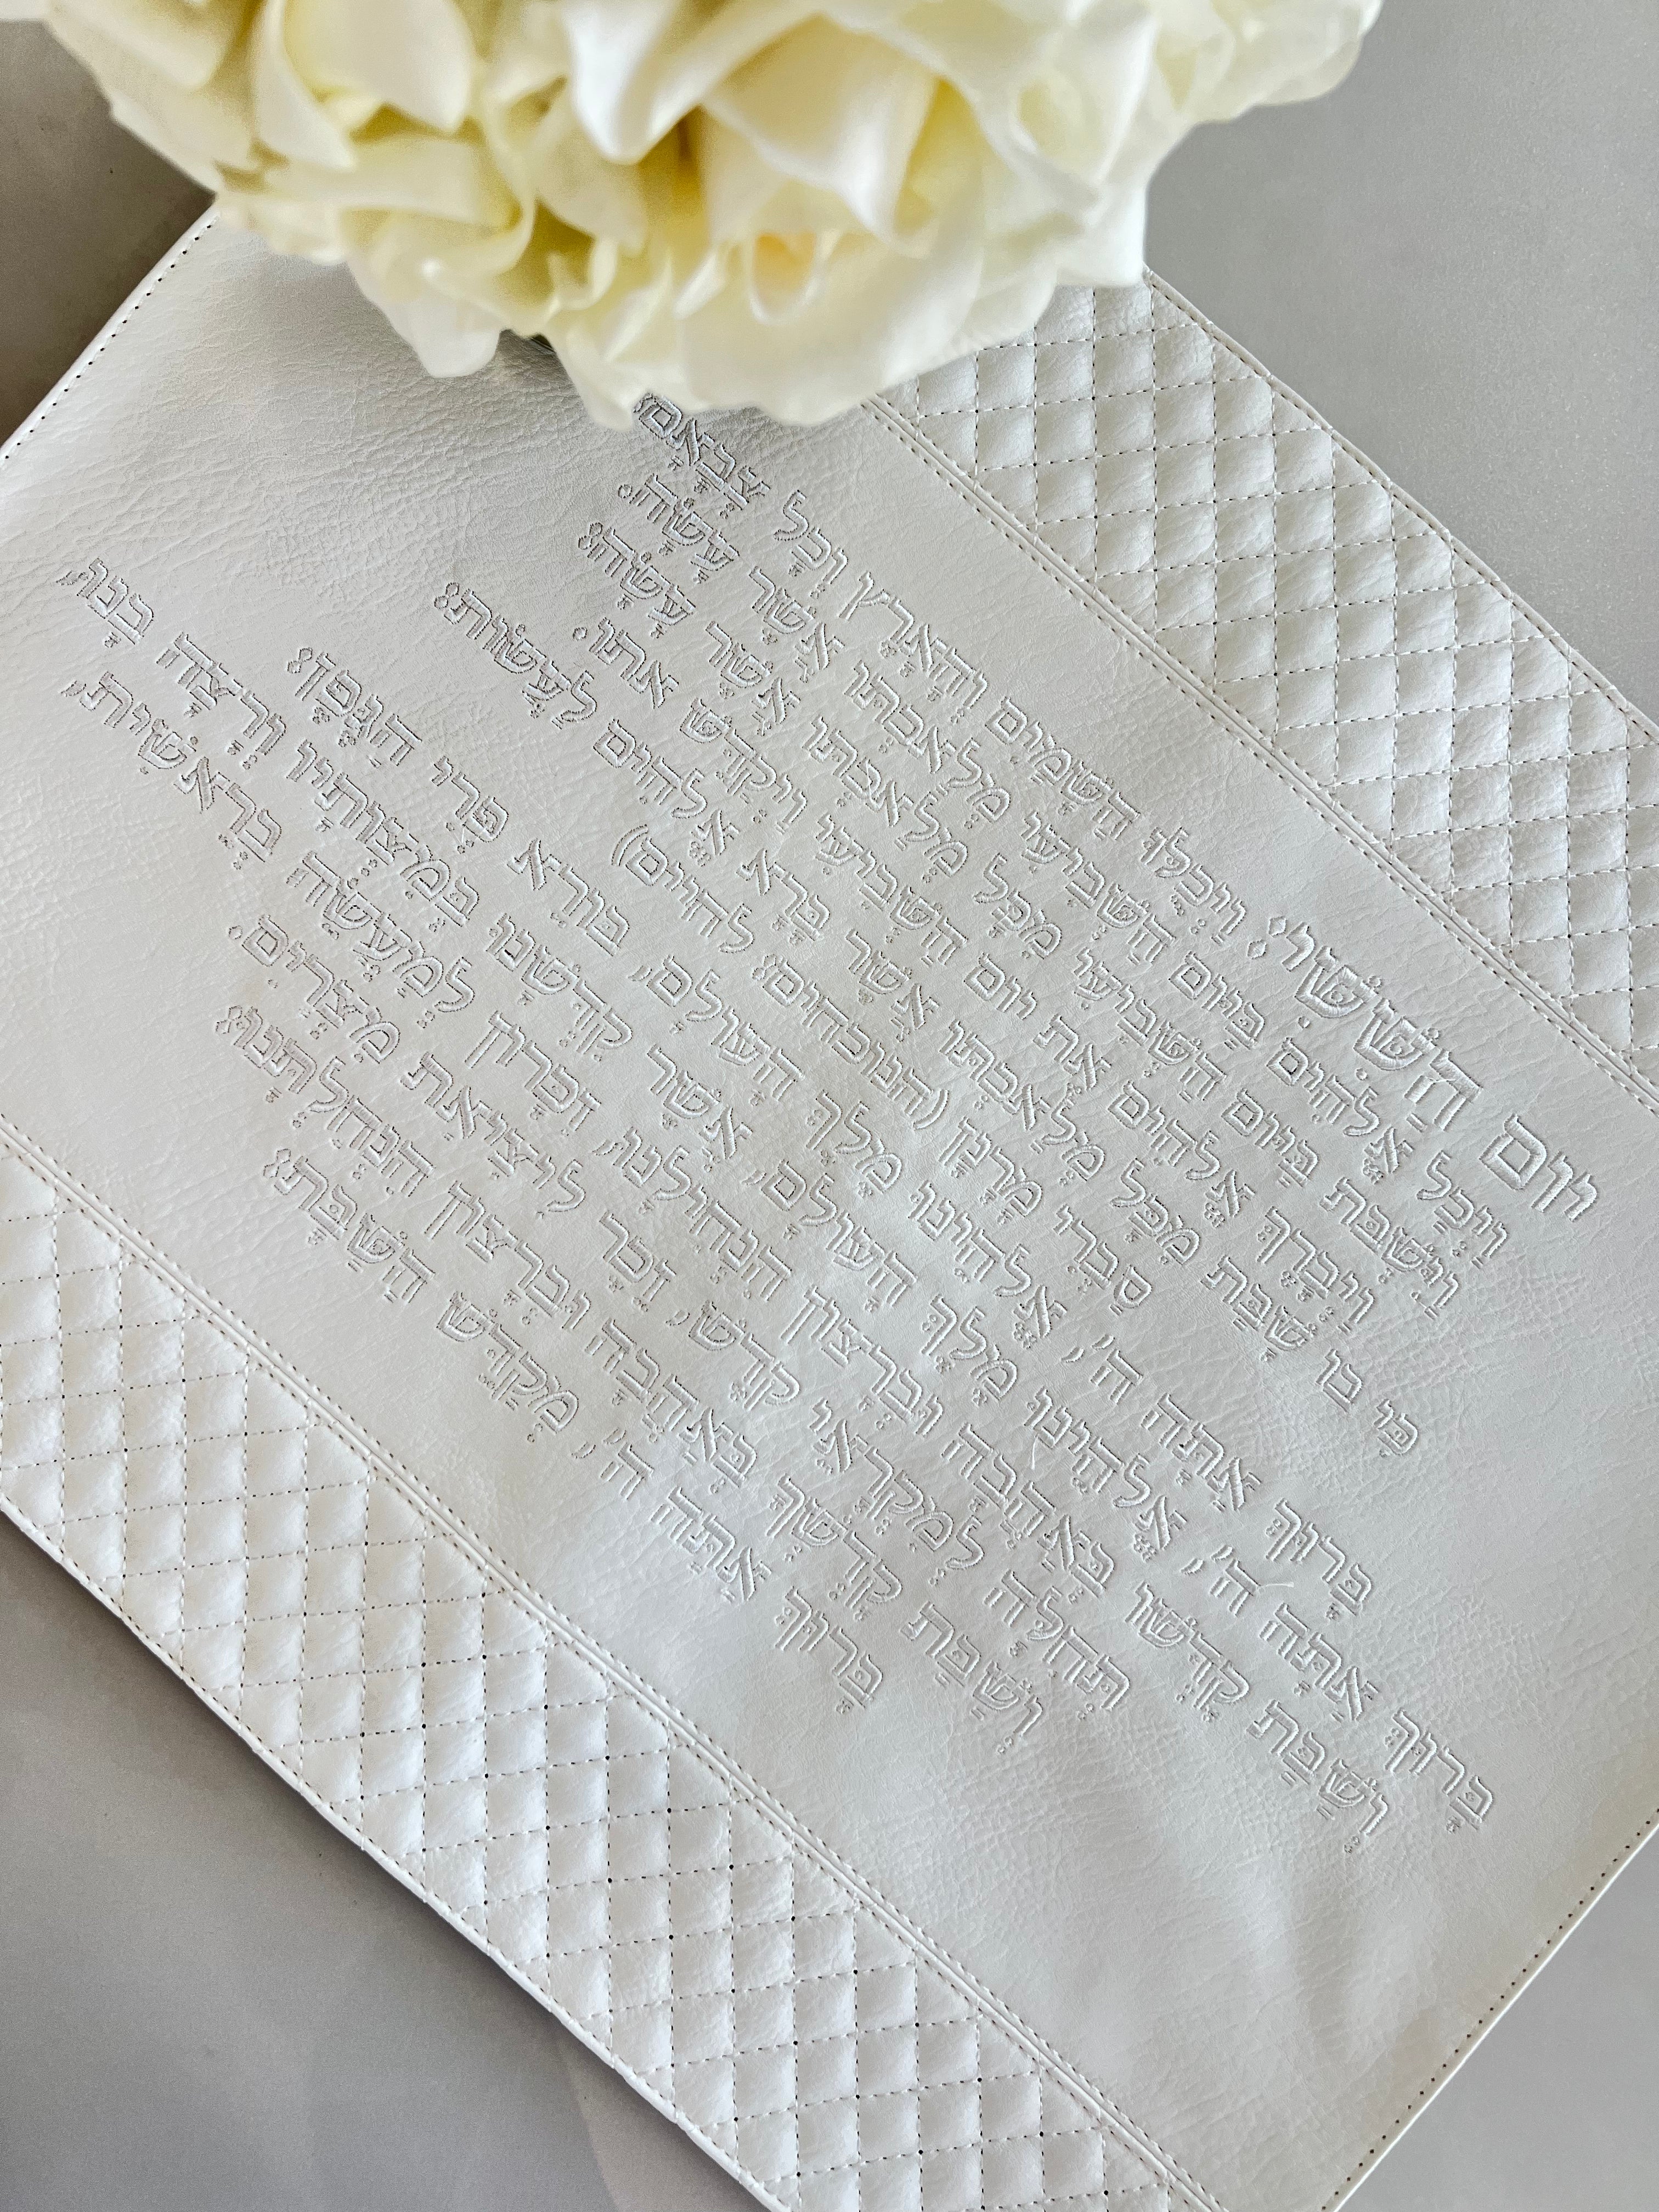 יוֹם הַשִּׁשִּׁי: וַיְכֻלּוּ הַשָּׁמַיִם וְהָאָרֶץ וְכָל צְבָאָם:
וַיְכַל אֱלֹהִים בַּיּוֹם הַשְּׁבִיעִי מְלַאכְתּוֹ אֲשֶׁר עָשָׂה.
וַיִּשְׁבֹּת בַּיּוֹם הַשְּׁבִיעִי מִכָּל מְלַאכְתּוֹ אֲשֶׁר עָשָׂה:
וַיְבָרֶךְ אֱלֹהִים אֶת יוֹם הַשְּׁבִיעִי וַיְקַדֵּשׁ אֹתוֹ.
כִּי בוֹ שָׁבַת מִכָּל מְלַאכְתּוֹ אֲשֶׁר בָּרָא אֱלֹהִים לַעֲשׂוֹת:
סַבְרִי מָרָנָן (הנוכחים: לחיים)
בָּרוּךְ אַתָּה ה', אֱלֹהֵינוּ מֶלֶךְ הָעוֹלָם, בּוֹרֵא פְּרִי הַגָּפֶן:
בָּרוּךְ אַתָּה ה', אֱלֹהֵינוּ מֶלֶךְ הָעוֹלָם, אֲשֶׁר קִדְּשָׁנוּ בְּמִצְוֹתָיו וְרָצָה בָנוּ,
וְשַׁבַּת קָדְשׁוֹ בְּאַהֲבָה וּבְרָצוֹן הִנְחִילָנוּ, זִכָּרוֹן לְמַעֲשֵׂה בְרֵאשִׁית,
תְּחִלָּה לְמִקְרָאֵי קֹדֶשׁ, זֵכֶר לִיצִיאַת מִצְרַיִם.
וְשַׁבַּת קָדְשְׁךָ בְּאַהֲבָה וּבְרָצוֹן הִנְחַלְתָּנוּ:
בָּרוּךְ אַתָּה ה', מְקַדֵּשׁ הַשַּׁבָּת: